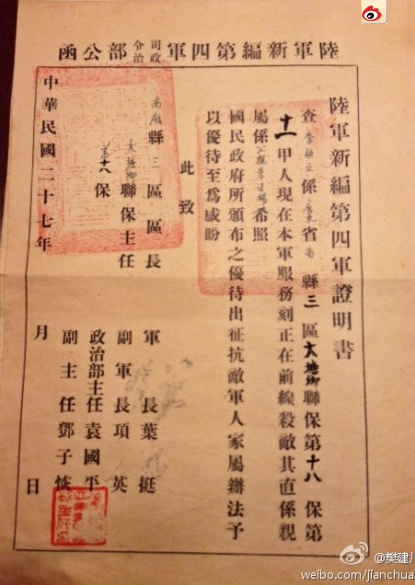 陸軍新編第四軍司令政治部公函
陸軍新編第四軍證明書
查 係 省南 縣三區大塘鄉聯保第十八保第
十一甲人現在本軍服務刻正在前線殺敵其直係親
屬係 希照
國民政府所頒布之優待出征抗敵軍人家屬辦法予
以優待至爲感盼
此致
南 縣三區區長
大塘鄉聯保主任
第十八保
軍長葉挺
副軍長項英
政治部主任袁國平
副主任鄧子恢
中華民國二十七年 月 日
@樊建川
weibo.com/jianchua